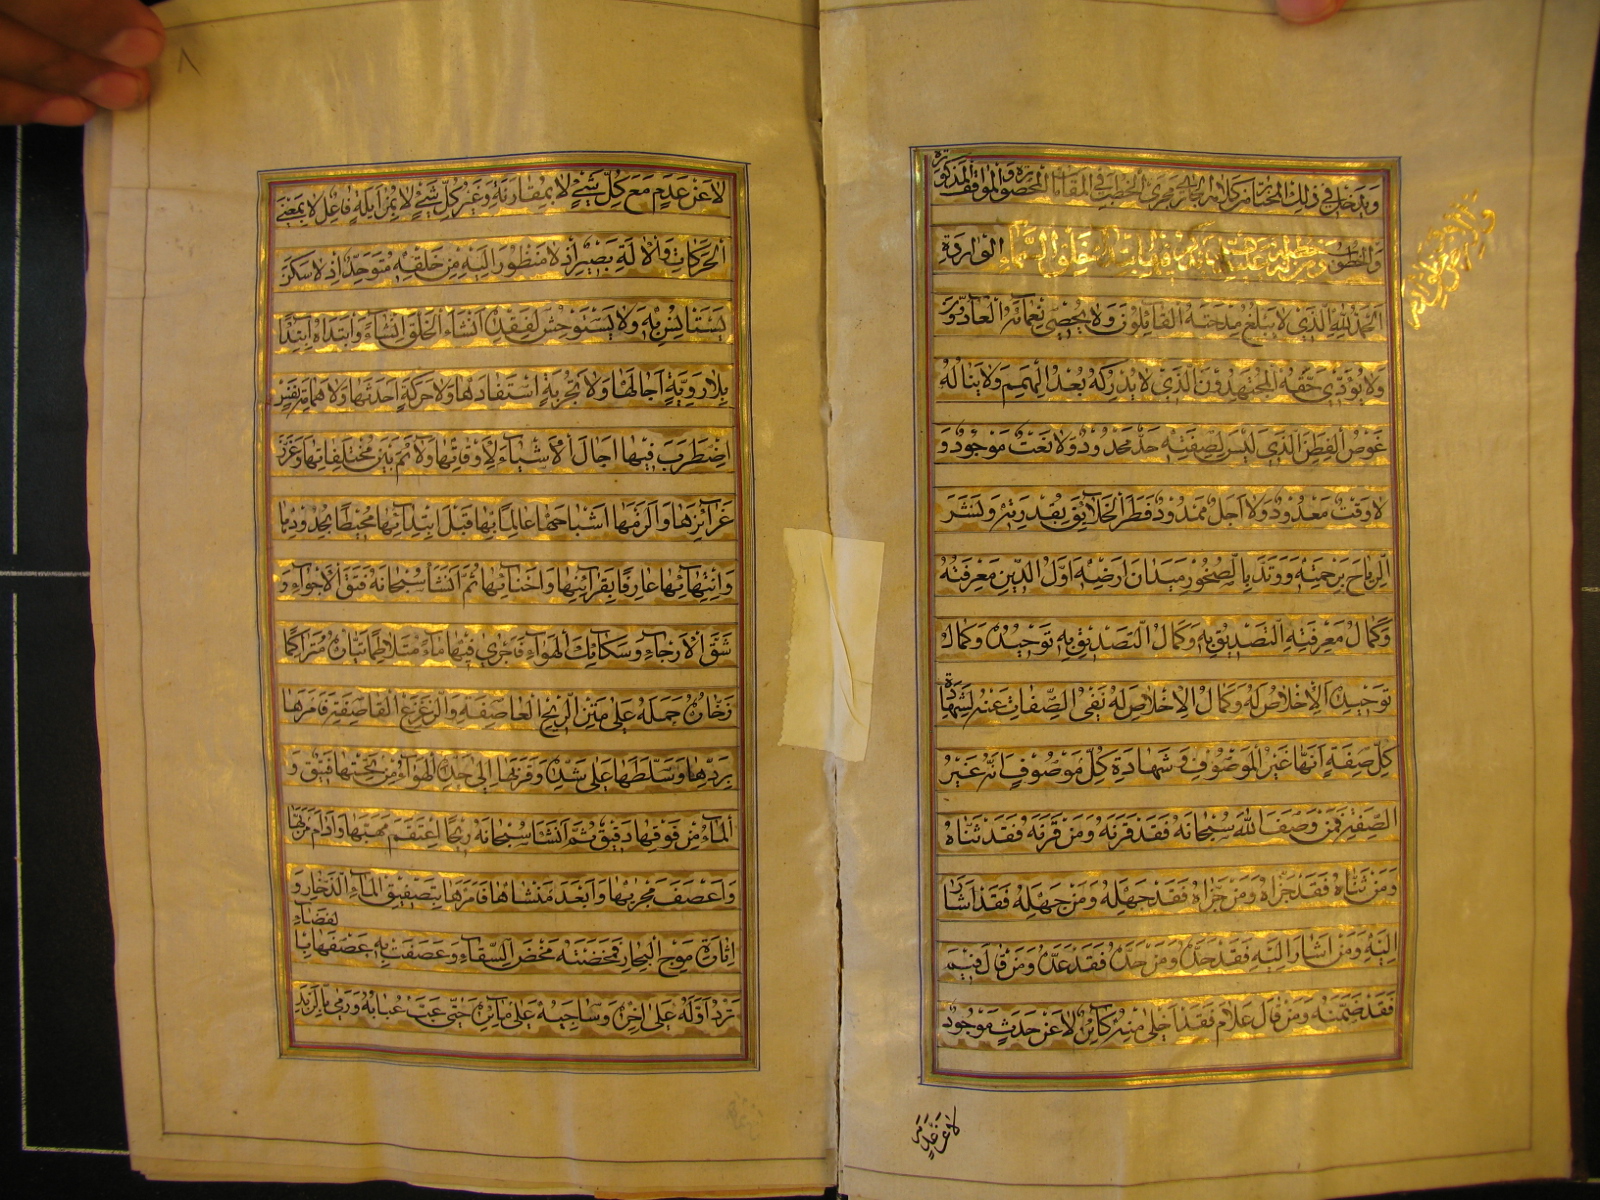 ويدخل في ذلك المختار من كلامه الجاري مجرى الخطب في المقامات المحضورة والمواقف المذكورة
والخطوب الواردة فمن خطبة له عليه السلام يذكر فيها ابتداء خلق السماء
والارض
اَلْحَمْدُ لِلّٰهِ الَّذي لا يَبْلُغُ مِدْحَتَهُ الْقائِلُونَ وَلا يُحْصي نَعْمائَهُ الْعادُّونَ
وَلا يُؤَدّي حَقَّهُ الْمُجْتَهِدُونَ الَّذي لا يُدْرِكُهُ بُعْدُ الْهِمَمِ وَلا يَنالُهُ
غَوْصُ الْفِطَنِ الَّذي لَيْسَ لِصِفَتِهِ حَدٌّ مَحْدُودٌ وَلا نَعْتٌ مَوْجُودٌ وَ
لا وَقْتٌ مَعْدُودٌ وَلا اَجَلٌ مَمْدُودٌ فَطَرَ الْخَلائِقَ بِقُدْرَتِهِ وَنَشَرَ
الرِّياحَ بِرَحْمَتِهِ وَوَتَّدَ بِالصُّخُورِ مَيَدانَ اَرْضِهِ اَوَّلُ الدّينِ مَعْرِفَتُهُ
وَكَمالُ مَعْرِفَتِهِ التَّصْديقُ بِهِ وَكَمالُ التَّصْديقِ بِهِ تَوْحيدُهُ وَكَمالُ
تَوْحيدِهِ الْاِخْلاصُ لَهُ وَكَمالُ الْاِخْلاصِ لَهُ نَفْيُ الصِّفاتِ عَنْهُ لِشَهادَةِ
كُلِّ صِفَةٍ اَنَّها غَيْرُ الْمَوْصُوفِ وَشَهادَةِ كُلِّ مَوْصُوفٍ اَنَّهُ غَيْرُ
الصِّفَةِ فَمَنْ وَصَفَ اللهَ سُبْحانَهُ فَقَدْ قَرَنَهُ وَمَنْ قَرَنَهُ فَقَدْ ثَنّاهُ
وَمَنْ ثَنّاهُ فَقَدْ جَزَّاهُ وَمَنْ جَزَّاهُ فَقَدْ جَهِلَهُ وَمَنْ جَهِلَهُ فَقَدْ اَشارَ
اِلَيْهِ وَمَنْ اَشارَ اِلَيْهِ فَقَدْ حَدَّهُ وَمَنْ حَدَّهُ فَقَدْ عَدَّهُ وَمَنْ قالَ فيمَ
فَقَدْ ضَمَّنَهُ وَمَنْ قالَ عَلامَ فَقَدْ اَخْلى مِنْهُ كائِنٌ لا عَنْ حَدَثٍ مَوْجُودٌ
لا عَنْ عَدَمٍ
٨
لا عَنْ عَدَمٍ مَعَ كُلِّ شَيْءٍ لا بِمُقارَنَةٍ وَغَيْرُ كُلِّ شَيْءٍ لا بِمُزايَلَةٍ فاعِلٌ لا بِمَعْنَى
الْحَرَكاتِ وَالْآلَةِ بَصيرٌ اِذْ لا مَنْظُورَ اِلَيْهِ مِنْ خَلْقِهِ مُتَوَحِّدٌ اِذْ لا سَكَنَ
يَسْتَأْنِسُ بِهِ وَلا يَسْتَوْحِشُ لِفَقْدِهِ اَنْشَأَ الْخَلْقَ اِنْشاءً وَابْتَدَاهُ ابْتِداءً
بِلا رَوِيَّةٍ اَجالَها وَلا تَجْرِبَةٍ اسْتَفادَها وَلا حَرَكَةٍ اَحْدَثَها وَلا هَمامَةِ نَفْسٍ
اضْطَرَبَ فيها اَجالَ الْاَشْياءَ لِاَوْقاتِها وَلاءَمَ بَيْنَ مُخْتَلِفاتِها وَغَرَّزَ
غَرائِزَها وَاَلْزَمَها اَشْباحَها عالِمًا بِها قَبْلَ ابْتِدائِها مُحيطًا بِحُدُودِها
وَانْتِهائِها عارِفًا بِقَرائِنِها وَاَحْنائِها ثُمَّ اَنْشَأَ سُبْحانَهُ فَتْقَ الْاَجْواءِ وَ
شَقَّ الْاَرْجاءِ وَسَكائِكَ الْهَواءِ فَاَجْرى فيها ماءً مُتَلاطِمًا تَيّارُهُ مُتَراكِمًا
زَخّارُهُ حَمَلَهُ عَلى مَتْنِ الرّيحِ الْعاصِفَةِ وَالزَّعْزَعِ الْقاصِفَةِ فَاَمَرَها
بِرَدِّهِ وَسَلَّطَها عَلى شَدِّهِ وَقَرَنَها اِلى حَدِّهِ الْهَواءُ مِنْ تَحْتِها فَتيقٌ وَ
الْماءُ مِنْ فَوْقِها دَفيقٌ ثُمَّ اَنْشَأَ سُبْحانَهُ ريحًا اعْتَقَمَ مَهَبَّها وَاَدامَ مُرَبَّها
وَاَعْصَفَ مَجْراها وَاَبْعَدَ مَنْشَاها فَاَمَرَها بِتَصْفيقِ الْماءِ الزَّخّارِ وَ
اِثارَةِ مَوْجِ الْبِحارِ فَمَخَضَتْهُ مَخْضَ السِّقاءِ وَعَصَفَتْ بِهِ عَصْفَها بِالْفَضاءِ
تَرُدُّ اَوَّلَهُ عَلى اخِرِهِ وَساجِيَهُ عَلى مائِرِهِ حَتّى عَبَّ عُبابُهُ وَرَمى بِالزَّبَدِ